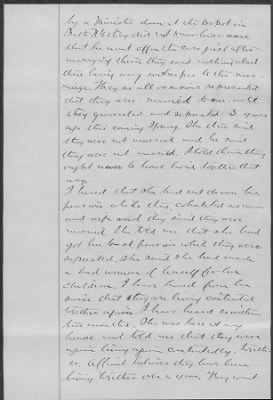 by a Minister down at the Depot in
that he went off on the cars just after
marrying them, they said nothing about
there being any witnesses to the mar-
riage. They as all ways represented
that they were married to me until
they quarreled and separated 3 years
ago this coming Spring. She then said
they were not married and he said
they were not married. I told them they
ought never to have lived together that
way.
I heard that she had not drawn her
pension while they cohabited as man
and wife and they said they were
married. She told me that she had
got her back pension while they were
separated. She said she had made
a bad woman of herself for her
children. I have heard from her
since that they are living contented
together again. I have heard
two months. She was here at my
house and told me that they were
again living again contentedly together
so. Affiant believes they have been
living together over a year. They went